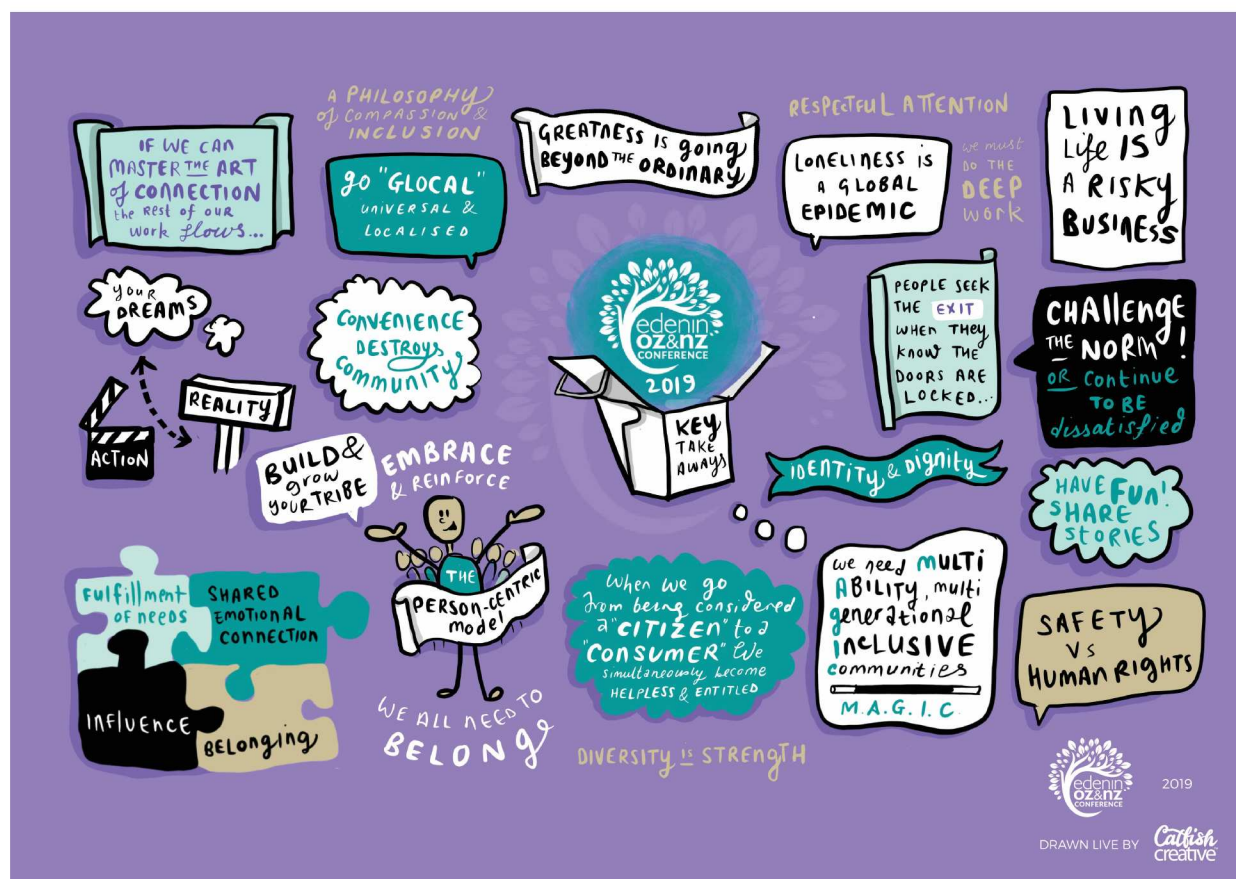 IF WE CAN
MASTER THE ART
of CONNECTION
the REST of OUR
work flows...
A PHILOSOPHY
of COMPASSION &
INCLUSION
go "GLOCAL"
UNIVERSAL &
LOCALISED
GREATNESS IS going
BEYOND THE ORDINARY
RESPECTFUL ATTENTION
LONELINESS is
A GLOBAL
EPIDEMIC
we must
DO THE
DEEP
WORK
LIVING
Life IS
A RISKY
BUSINESS
YOUR
DREAMS
ACTION
REALITY
CONVENIENCE
DESTROYS
COMMUNITY
edenin
OZ&NZ
CONFERENCE
2019
KEY
TAKE
AWAYS
PEOPLE SEEK
THE EXIT
WHEN THEY
KNOW THE
DOORS ARE
LOCKED...
CHALLENGE
THE NORM!
OR Continue
TO BE
dissatisfied
BUILD &
grow
YOUR TRIBE
EMBRACE
& REINFORCE
IDENTITY & DIGNITY
HAVE FUN!
SHARE
STORIES
Fulfillment
OF NEEDS
SHARED
EMOTIONAL
CONNECTION
INFLUENCE
BELONGING
THE
PERSON-CENTRIC
model
WE ALL NEED TO
BELONG
When we go
from being considered
a "CITIZEN" to a
"CONSUMER" We
simultaneously become
HELPLESS & ENTITLED
DIVERSITY IS STRENGTH
we need MULTI
ABILITY, multi
generational
INCLUSIVE
communities
M.A.G.I.C.
SAFETY
VS
HUMAN RIGHTS
edenin
OZ&NZ
CONFERENCE
2019
DRAWN LIVE BY
Catfish
creative